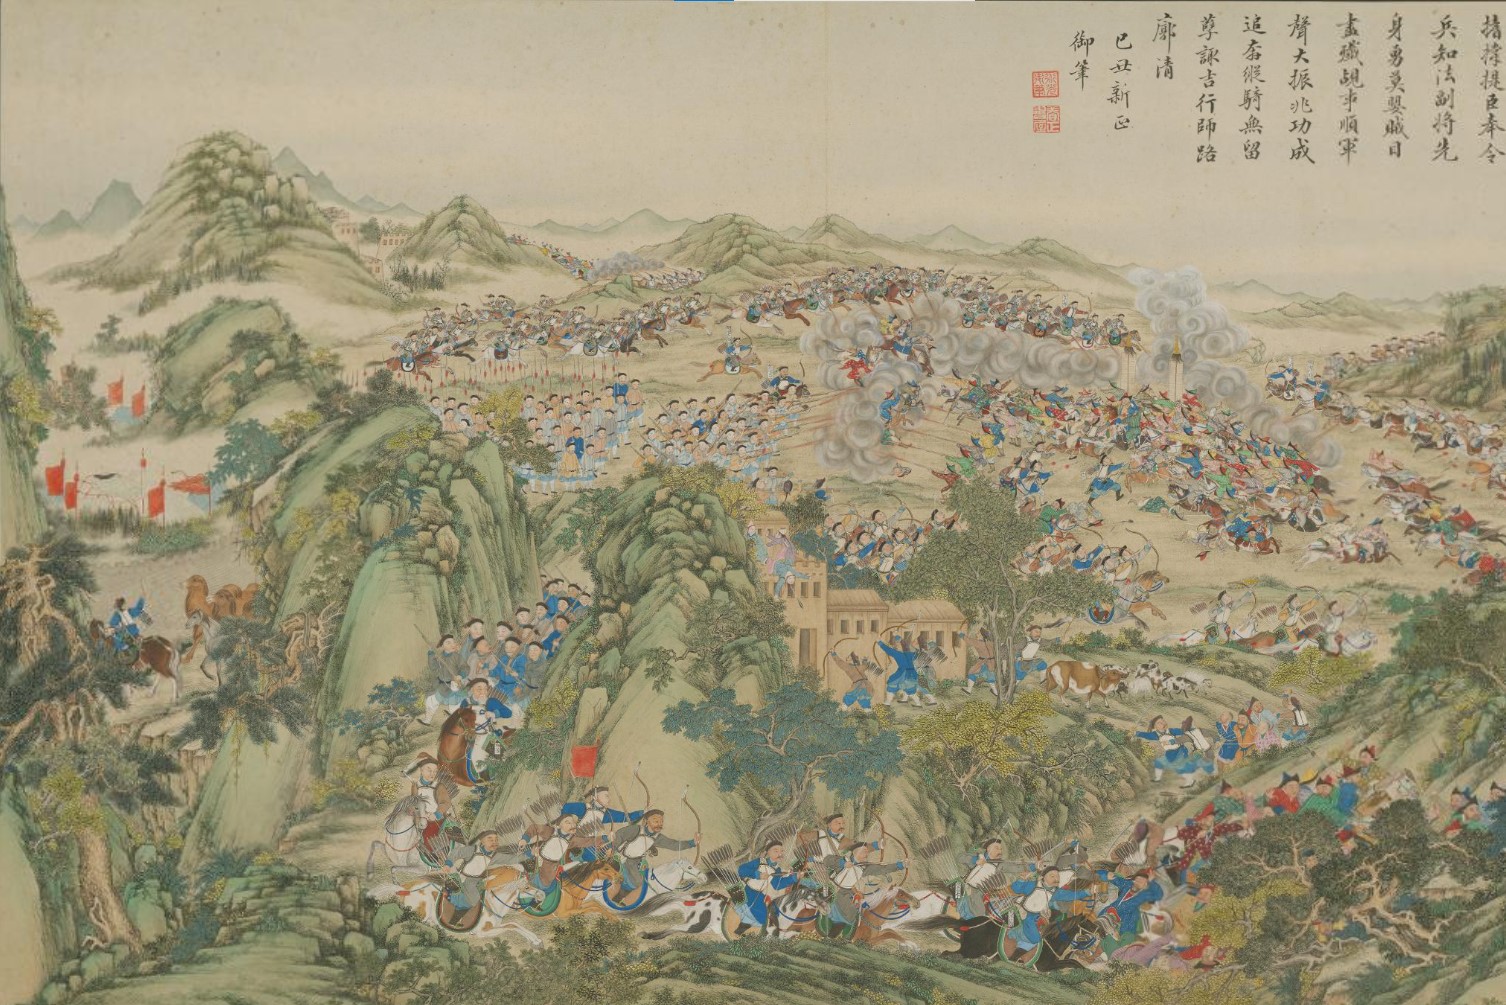 提臣奉令
兵知法副將先
身勇莫嬰賊目
盡殲覘事順軍
聲大振兆功成
追奔縱騎無留
孽諏吉行師路
廓清
己丑新正
御筆